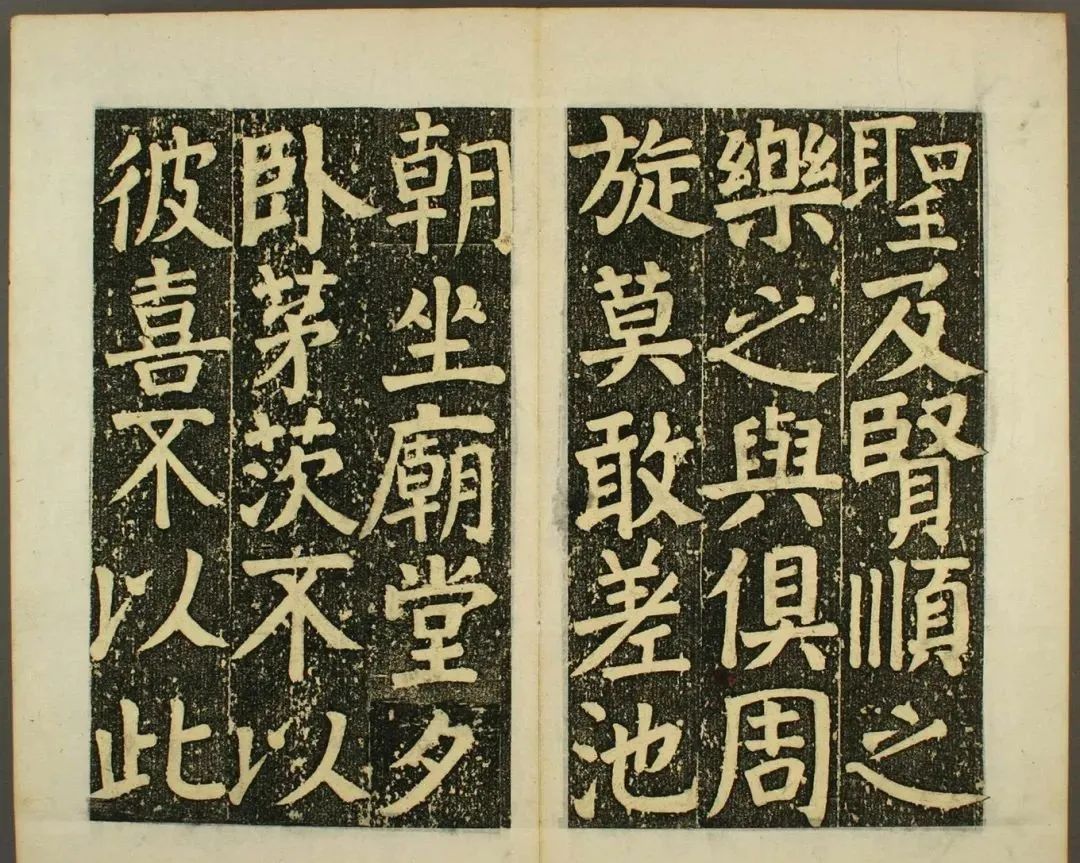 聖及賢順之
樂之與俱周
旋莫敢差池
朝坐廟堂夕
卧茅茨不以
彼喜不以此